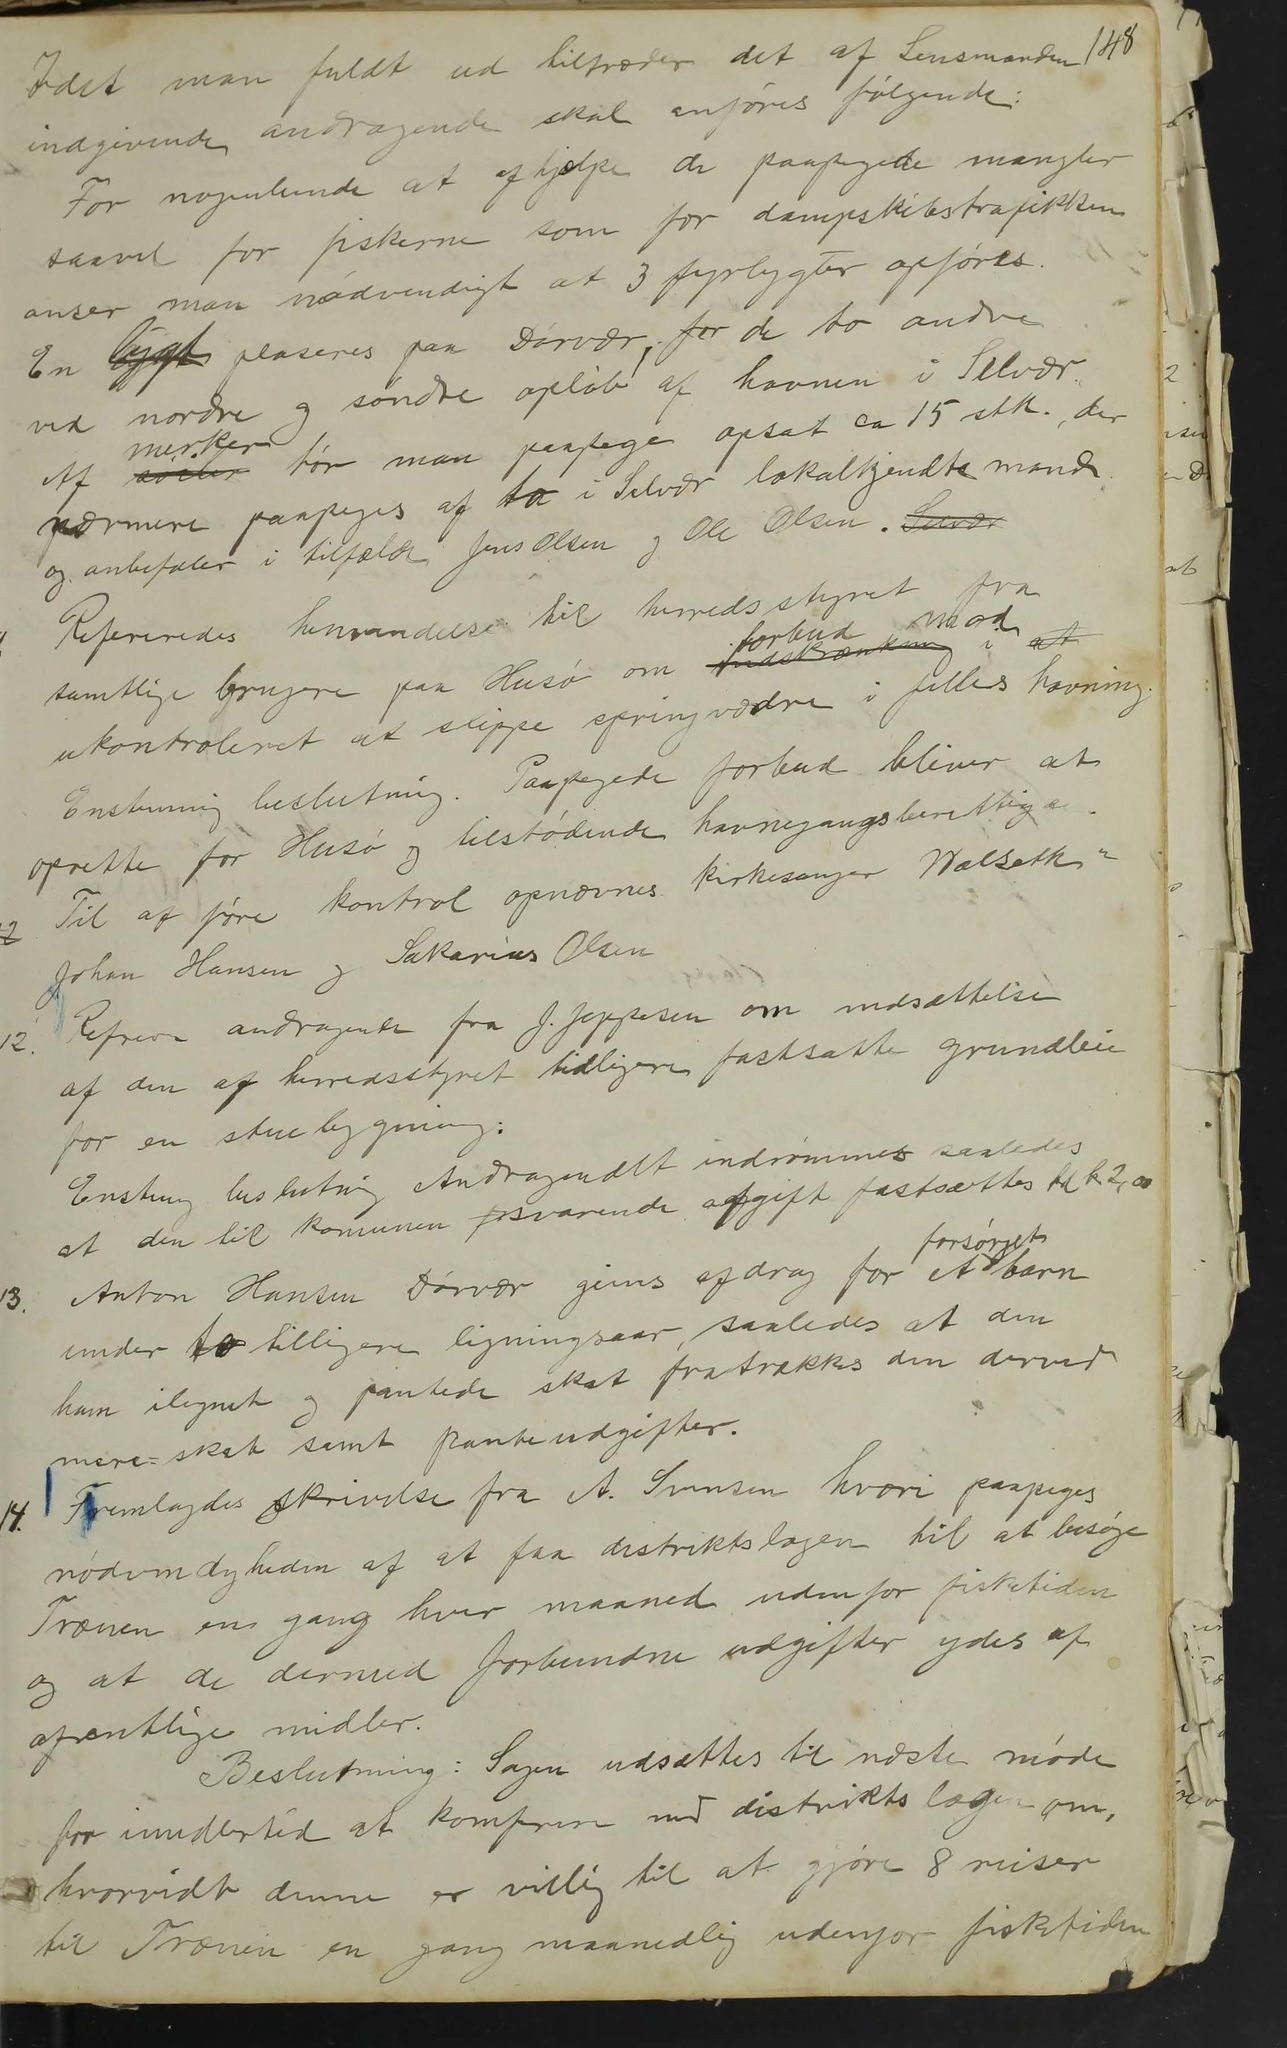 148
Idet man fuldt ud tiltræder det af Lensmanden
indgivende andragende skal anføres følgende:
For nogenlunde at afhjælpe de paapegede mangler
saavel for fiskerne som for dampskibstrafikken
anser man nødvendigt at 3 fyrlygter opføres.
En lygt plaseres paa Dørvær, for de to andre
ved nordre og søndre opløb af havnen i Selvær.
merker
Af tør man paapege opsat ca 15 stk., der
nærmere paapeges af to i Selvær lokalkjendte mænd
og anbefaler i tilfælde Jens Olsen og Ole Olsen. Selvær
Refereredes henvendelse til herredsstyret fra
forbud mod
samtlige brugere paa Husø om indskrænkning i at
ukontroleret at slippe springvædre i felles havning.
Enstemmig beslutning. Paapegede forbud bliver at
oprette for Husø og tilstødende havnegangsberettigede.
Til af føre kontrol opnævnes kirkesanger Walseth
Johan Hansen og Sakarius Olsen
12. Refrere andragende fra J. Jeppesen om nedsættelse
af den af herredsstyret tidligere fastsatte grundleie
for en stuebygning.
Enstemg beslutning Andragendet indrømmes saaledes
at den til komunen svarende afgift fastsættes til k 2,00
forsørget
13. Anton Hansen Dørvær gives afdrag for et barn
under to tilligere ligningsaar, saaledes at den
ham ilignet og pantede skat fratrækkes den derved
mere=skat samt panteudgifter.
14. Fremlagdes skrivelse fra A. Svensen hvori paapeges
nødvendigheden af at faa distriktslægen til at besøge
Trænen en gang hver maaned udenfor fisketiden
og at de dermed forbundne udgifter ydes af
ofrentlige midler.
Beslutning: Sagen udsættes til næste møde
for imidlertid at komferere med distriktslægen om,
hvorvidt denne er villig til at gjøre 8 reiser
til Trænen en gang maanedlig udenfor fisketiden